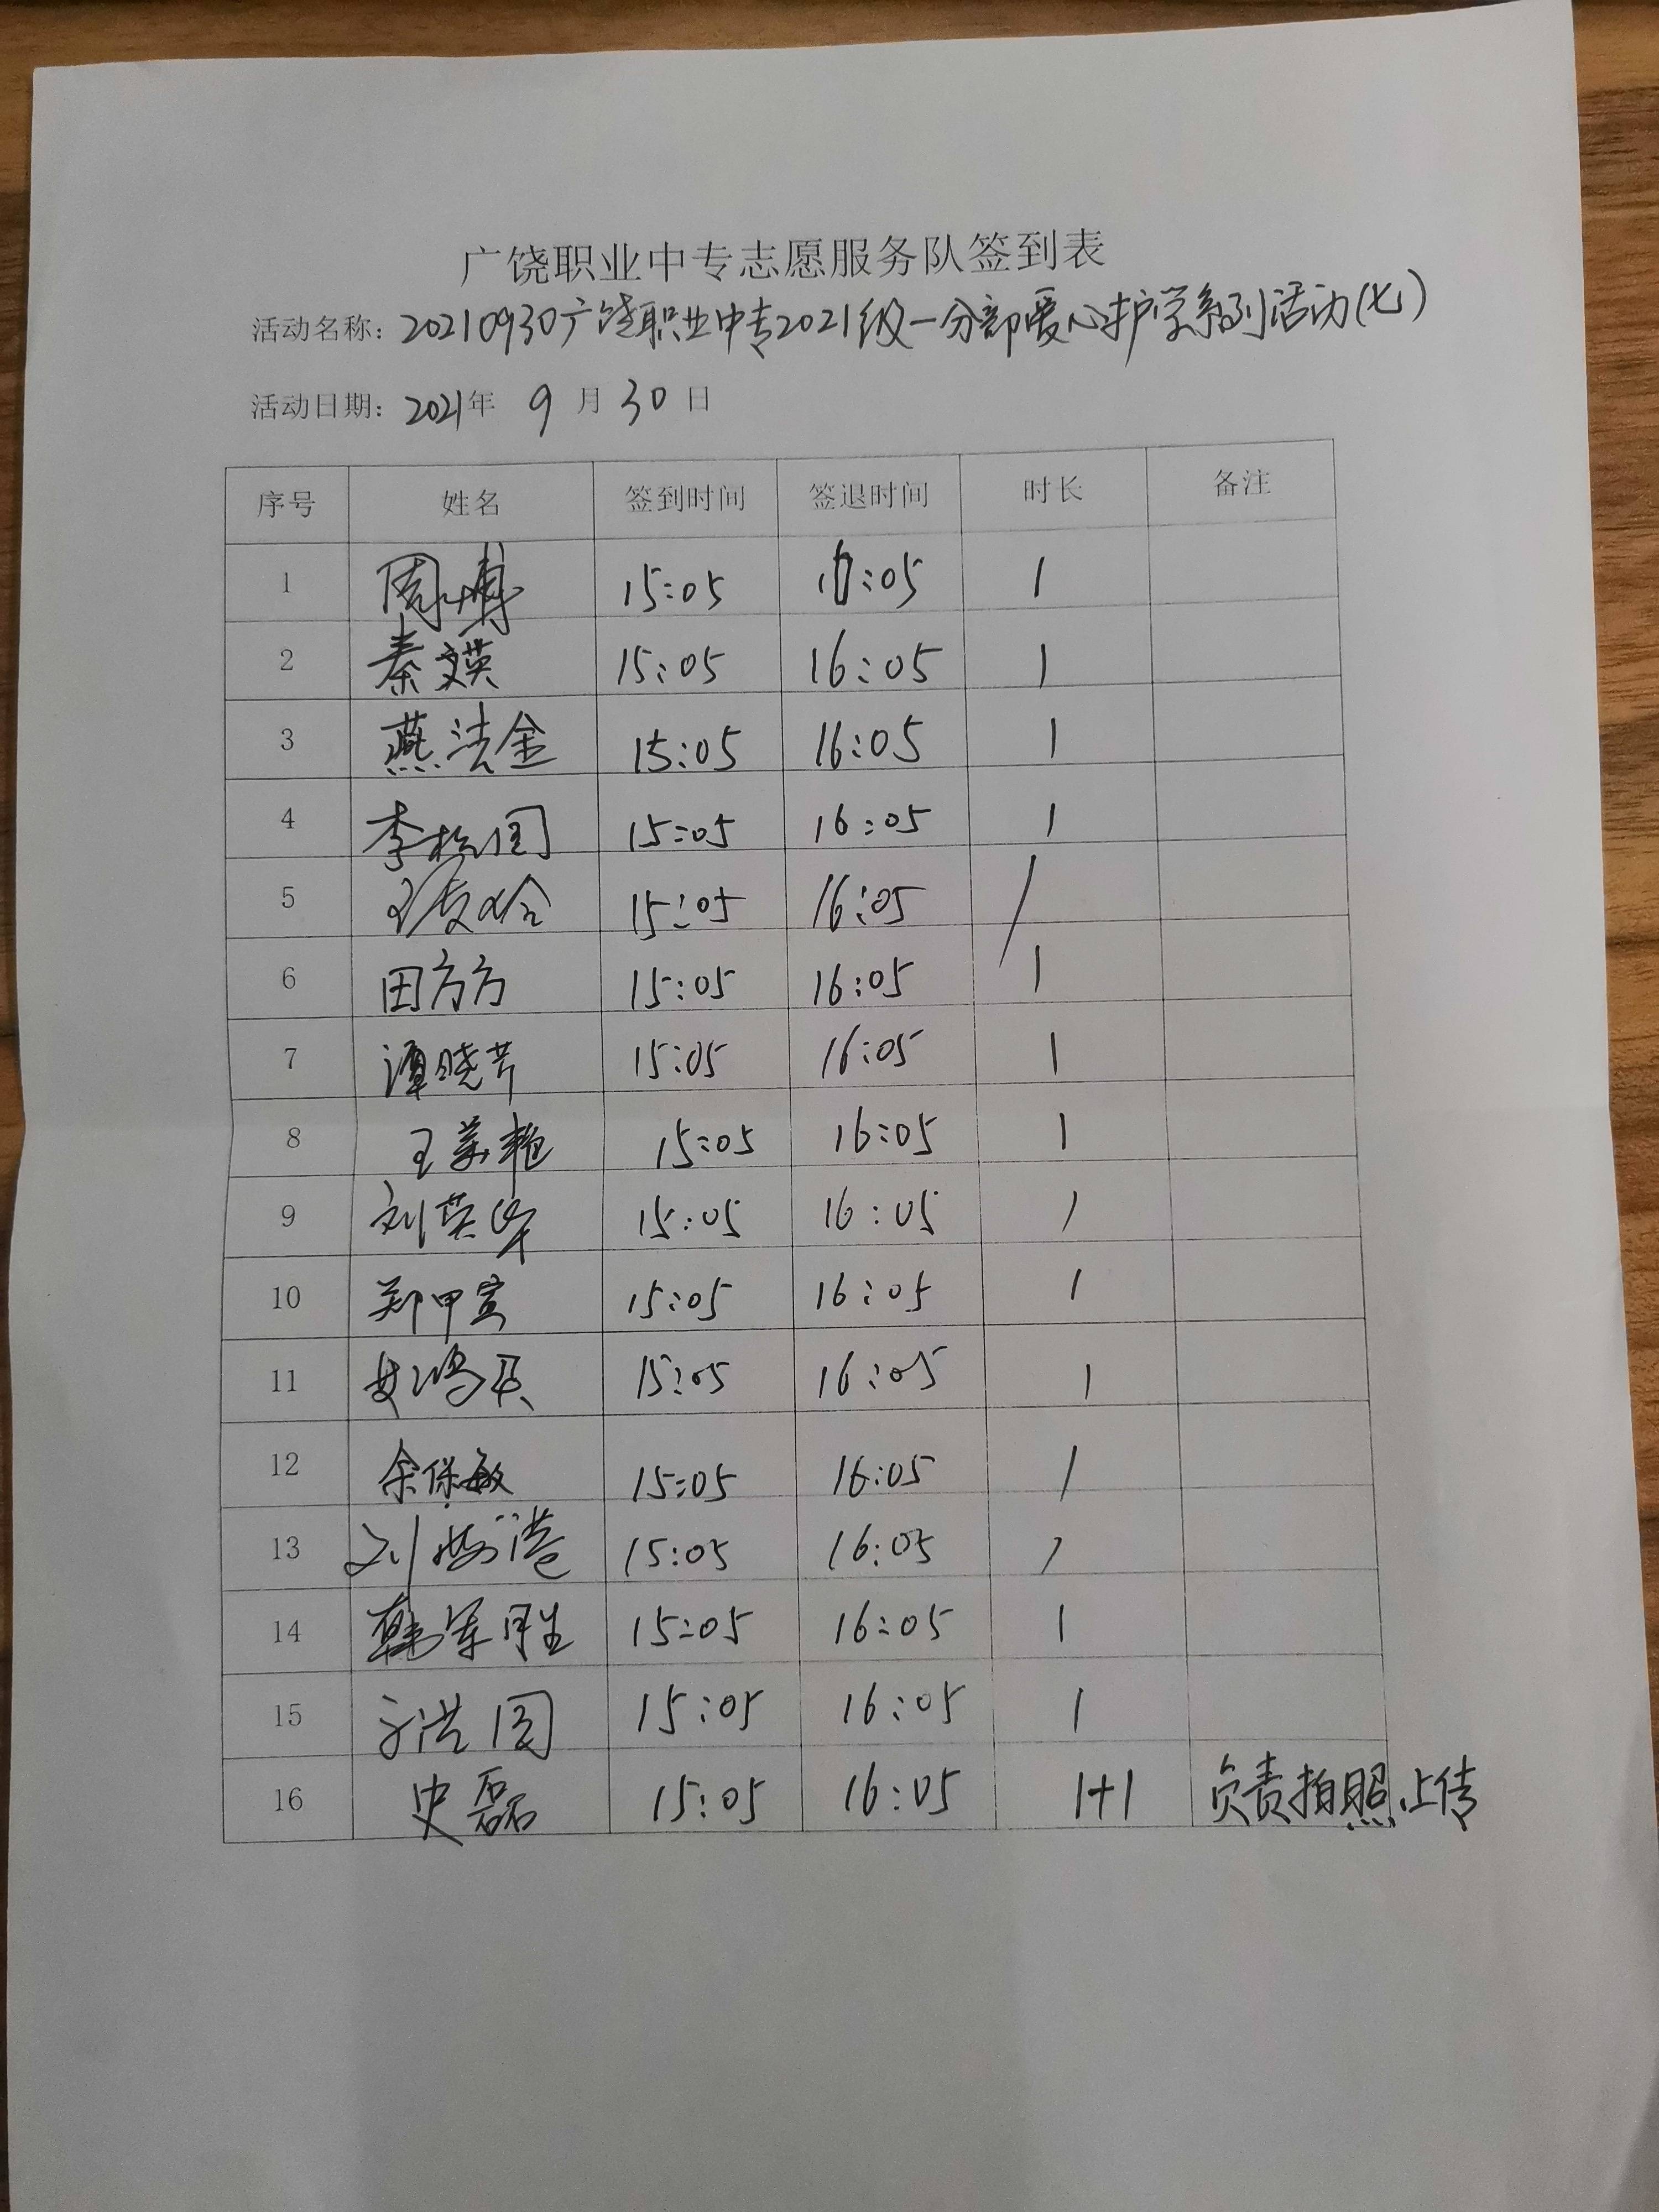 广饶职业中专志愿服务队签到表
活动名称：20210930广饶职业中专2021级一分部爱心护学系列活动(七)
活动日期：2021年 9 月 30 日
序号 姓名 签到时间 签退时间 时长 备注
1 周博 15:05 :05 1
2 秦文英 15:05 16:05 1
3 燕法金 15:05 16:05 1
4 李松国 15:05 16:05 1
5 15:05 16:05 1
6 田方方 15:05 16:05 1
7 谭晓芹 15:05 16:05 1
8 王美艳 15:05 16:05 1
9 刘英华 15:05 16:05 1
10 郑甲宾 15:05 16:05 1
11 15:05 16:05 1
12 余保敏 15:05 16:05 1
13 刘海港 15:05 16:05 1
14 韩军胜 15:05 16:05 1
15 于洪国 15:05 16:05 1
16 史磊 15:05 16:05 1+1 负责拍照上传